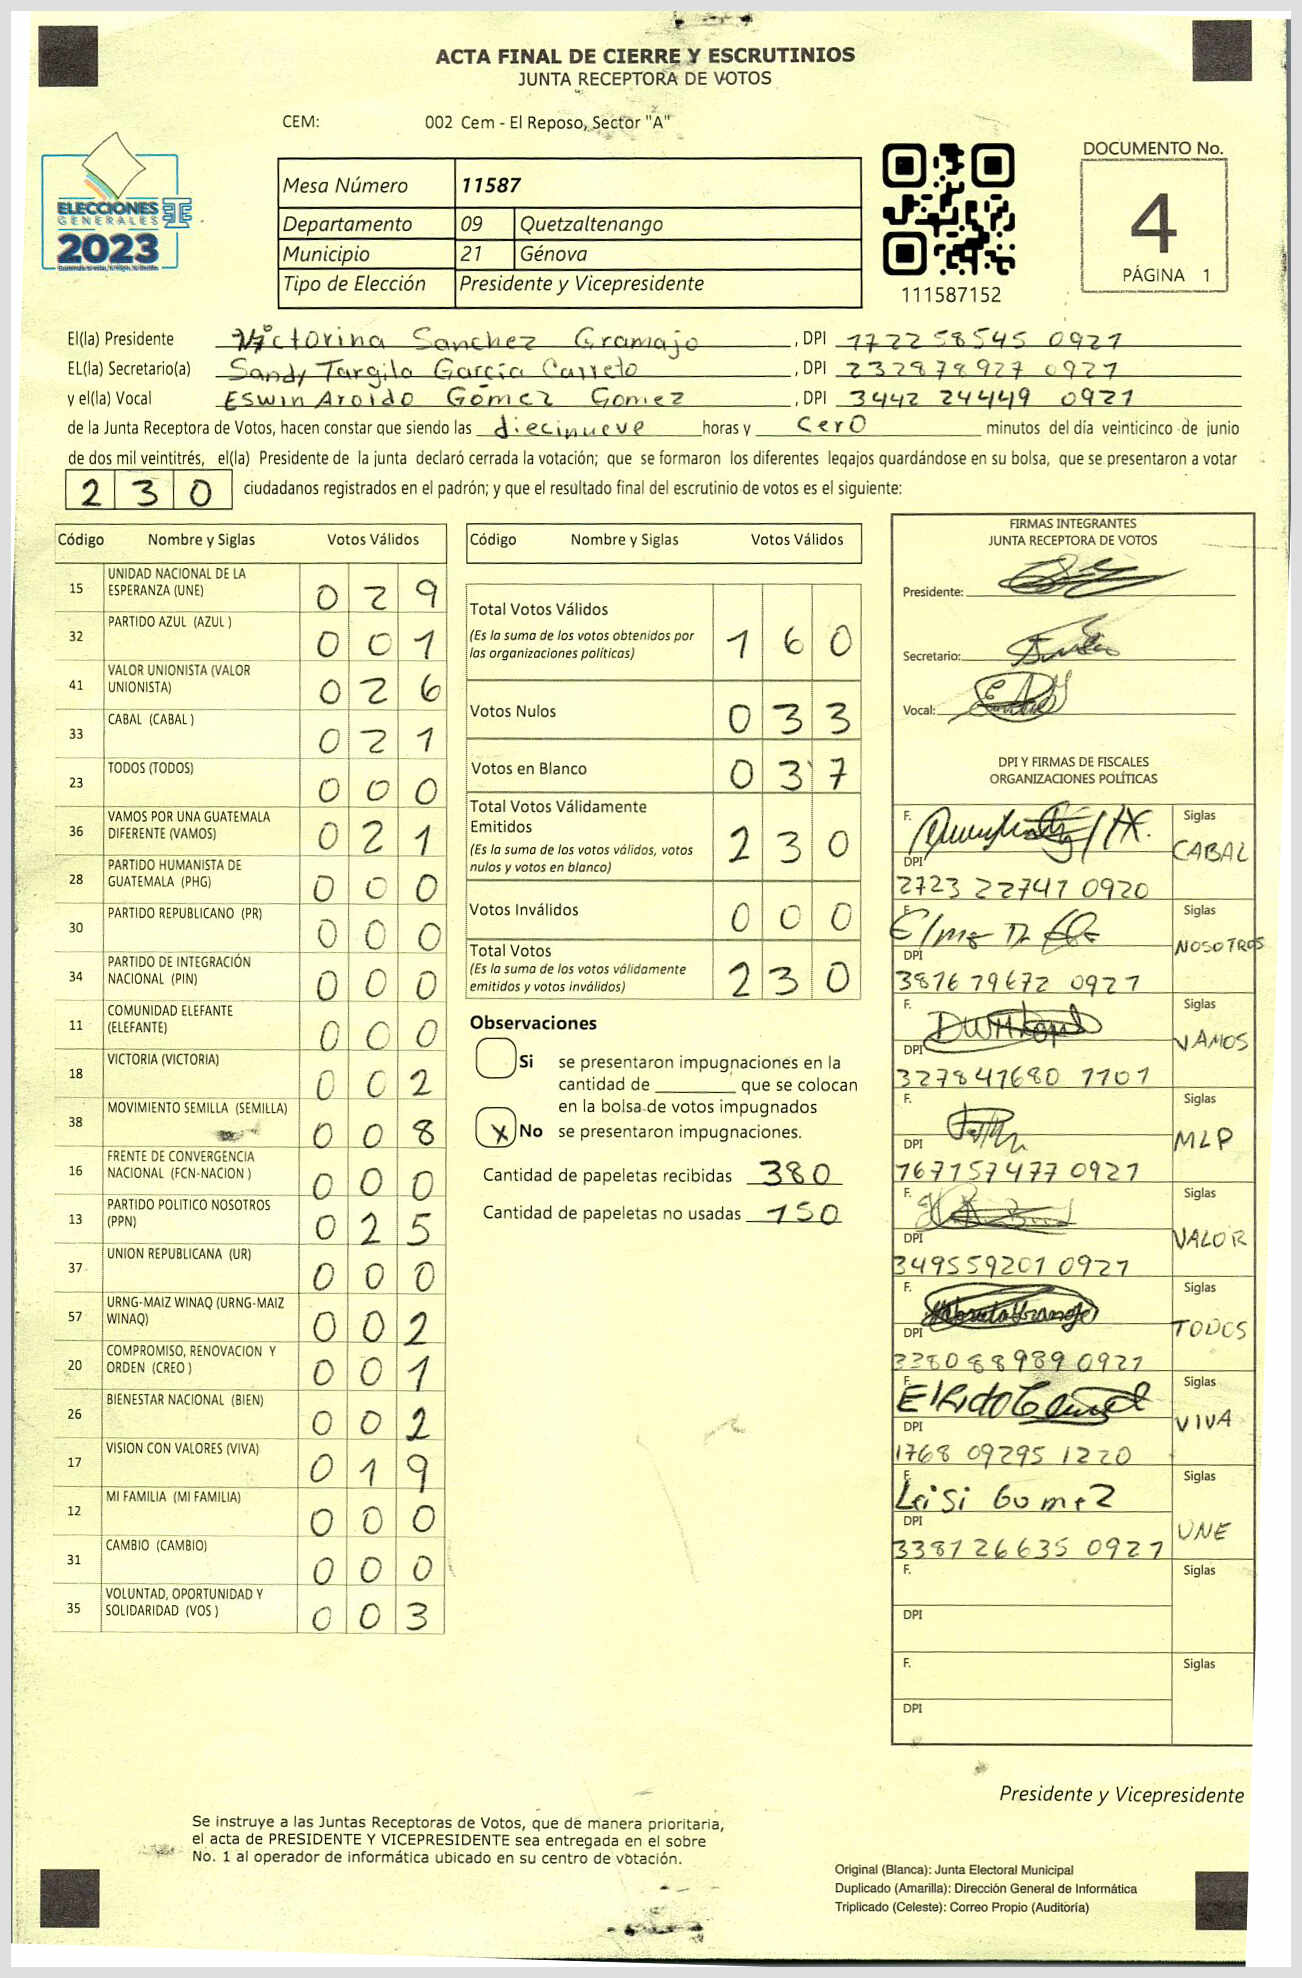 ACTA FINAL DE CIERRE Y ESCRUTINIOS
JUNTA RECEPTORA DE VOTOS
CEM: 002 Cem - El Reposo, Sector "A"
ELECCIONES
GENERALES
2023
Mesa Número 11587
Departamento 09 Quetzaltenango
Municipio 21 Génova
Tipo de Elección Presidente y Vicepresidente
111587152
DOCUMENTO No.
4
PÁGINA 1
El(la) Presidente Victorina Sanchez Gramajo, DPI 1722 58545 0921
EL(la) Secretario(a) Sandy Targila García Carreto, DPI 232878927 0921
y el(la) Vocal Eswin Aroldo Gómez Gomez, DPI 3442 24449 0921
de la Junta Receptora de Votos, hacen constar que siendo las diecinueve horas y cero minutos del día veinticinco de junio
de dos mil veintitrés, el(la) Presidente de la junta declaró cerrada la votación; que se formaron los diferentes legajos guardándose en su bolsa, que se presentaron a votar
230 ciudadanos registrados en el padrón; y que el resultado final del escrutinio de votos es el siguiente:
Código Nombre y Siglas Votos Válidos
15 UNIDAD NACIONAL DE LA
ESPERANZA (UNE) 029
32 PARTIDO AZUL (AZUL ) 001
41 VALOR UNIONISTA (VALOR
UNIONISTA) 026
33 CABAL (CABAL ) 021
23 TODOS (TODOS) 000
36 VAMOS POR UNA GUATEMALA
DIFERENTE (VAMOS) 021
28 PARTIDO HUMANISTA DE
GUATEMALA (PHG) 000
30 PARTIDO REPUBLICANO (PR) 000
34 PARTIDO DE INTEGRACIÓN
NACIONAL (PIN) 000
11 COMUNIDAD ELEFANTE
(ELEFANTE) 000
18 VICTORIA (VICTORIA) 002
38 MOVIMIENTO SEMILLA (SEMILLA) 008
16 FRENTE DE CONVERGENCIA
NACIONAL (FCN-NACION ) 000
13 PARTIDO POLITICO NOSOTROS
(PPN) 025
37 UNION REPUBLICANA (UR) 000
57 URNG-MAIZ WINAQ (URNG-MAIZ
WINAQ) 002
20 COMPROMISO, RENOVACION Y
ORDEN (CREO ) 001
26 BIENESTAR NACIONAL (BIEN) 002
17 VISION CON VALORES (VIVA) 019
12 MI FAMILIA (MI FAMILIA) 000
31 CAMBIO (CAMBIO) 000
35 VOLUNTAD, OPORTUNIDAD Y
SOLIDARIDAD (VOS ) 003
Código Nombre y Siglas Votos Válidos
Total Votos Válidos
(Es la suma de los votos obtenidos por
las organizaciones políticas) 160
Votos Nulos 033
Votos en Blanco 037
Total Votos Válidamente
Emitidos
(Es la suma de los votos válidos, votos
nulos y votos en blanco) 230
Votos Inválidos 000
Total Votos
(Es la suma de los votos válidamente
emitidos y votos inválidos) 230
Observaciones
Si se presentaron impugnaciones en la
cantidad de ________ que se colocan
en la bolsa de votos impugnados
X No se presentaron impugnaciones.
Cantidad de papeletas recibidas 380
Cantidad de papeletas no usadas 150
FIRMAS INTEGRANTES
JUNTA RECEPTORA DE VOTOS
Presidente:
Secretario:
Vocal:
DPI Y FIRMAS DE FISCALES
ORGANIZACIONES POLÍTICAS
F. Siglas
CABAL
DPI
2723 22741 0920
F. Siglas
NOSOTROS
DPI
3876 79672 0921
F. Siglas
VAMOS
DPI
327841680 1101
F. Siglas
MLP
DPI
167157477 0921
F. Siglas
VALOR
DPI
349559201 0921
F. Siglas
TODOS
DPI
338088989 0921
F. Siglas
VIVA
DPI
1768 09295 1220
F. Leisi Gomez Siglas
UNE
DPI
338126635 0921
F. Siglas
DPI
F. Siglas
DPI
Presidente y Vicepresidente
Se instruye a las Juntas Receptoras de Votos, que de manera prioritaria,
el acta de PRESIDENTE Y VICEPRESIDENTE sea entregada en el sobre
No. 1 al operador de informática ubicado en su centro de votación.
Original (Blanca): Junta Electoral Municipal
Duplicado (Amarilla): Dirección General de Informática
Triplicado (Celeste): Correo Propio (Auditoría)